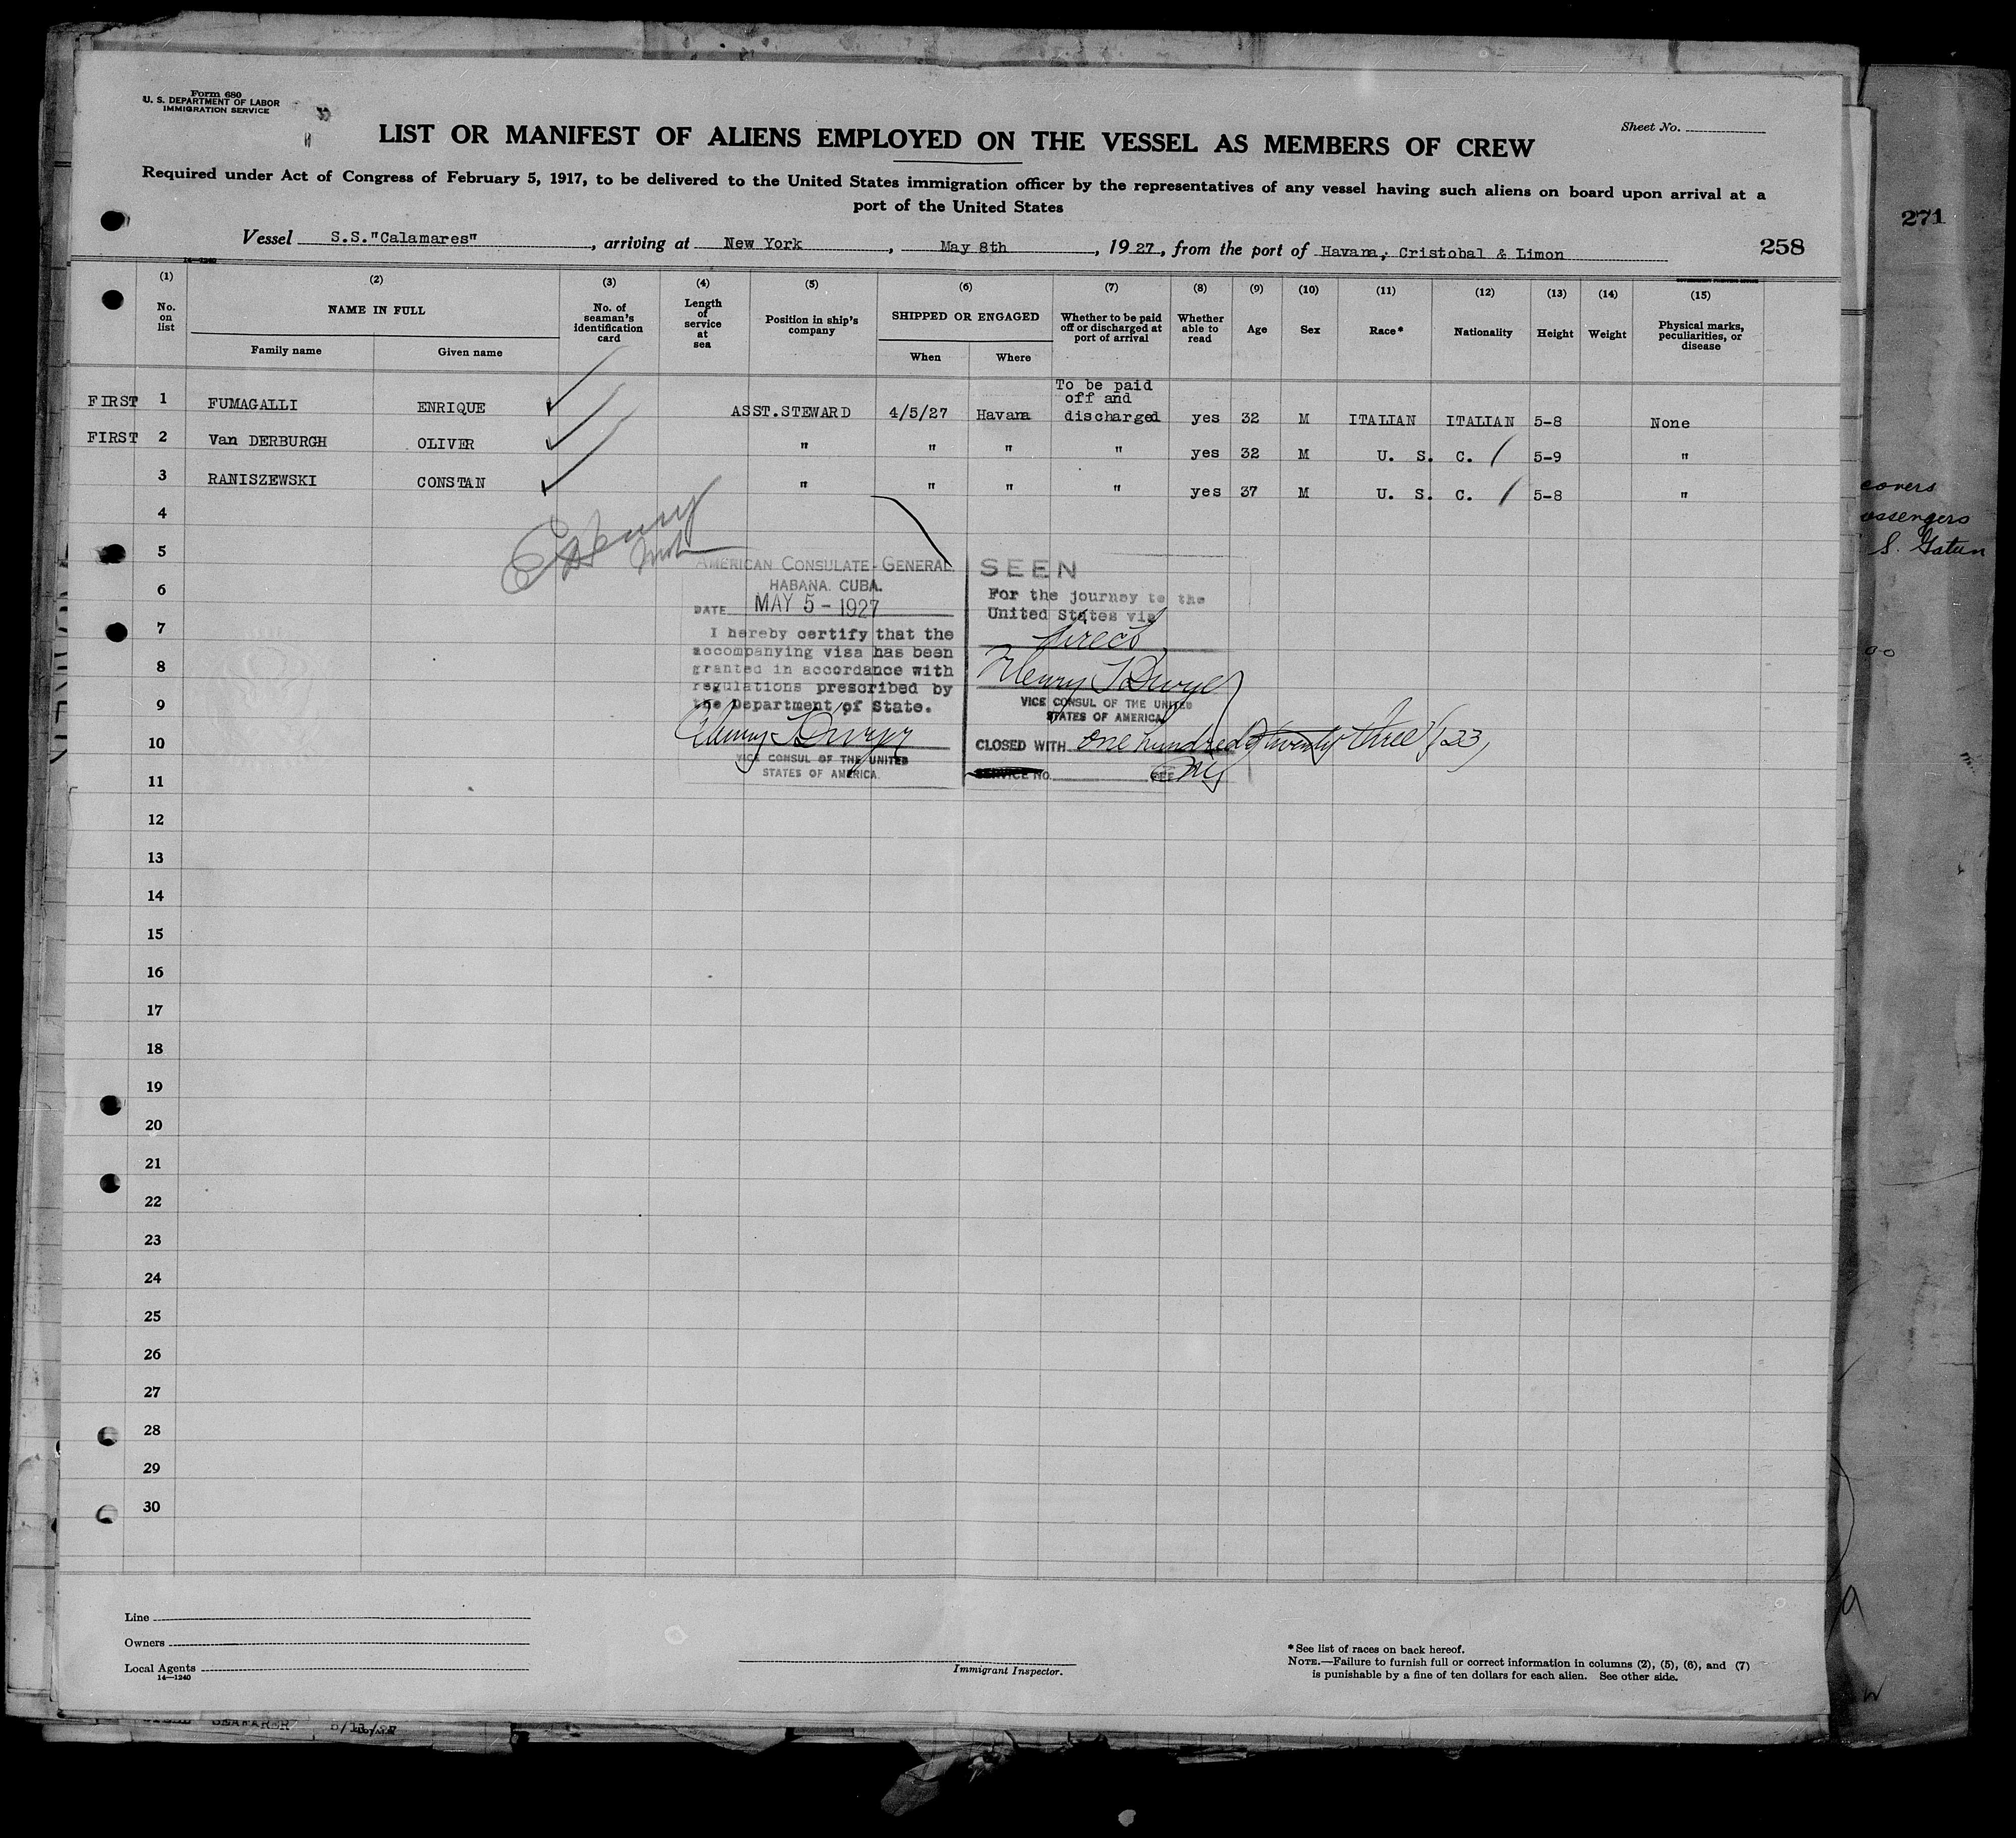 Form 680
U. S. DEPARTMENT OF LABOR
IMMIGRATION SERVICE
Sheet No.
LIST OR MANIFEST OF ALIENS EMPLOYED ON THE VESSEL AS MEMBERS OF CREW
Required under Act of Congress of February 5, 1917, to be delivered to the United States immigration officer by the representatives of any vessel having such aliens on board upon arrival at a
port of the United States
271
Vessel S.S."Calamares", arriving at New York, May 8th, 1927, from the port of Havana, Cristobal & Limon 258
14—1240
(1) (2) (3) (4) (5) (6) (7) (8) (9) (10) (11) (12) (13) (14) (15)
No. on list NAME IN FULL No. of seaman's identification card Length of service at sea Position in ship's company SHIPPED OR ENGAGED Whether to be paid off or discharged at port of arrival Whether able to read Age Sex Race* Nationality Height Weight Physical marks, peculiarities, or disease
Family name Given name When Where
FIRST 1 FUMAGALLI ENRIQUE ASST.STEWARD 4/5/27 Havana To be paid off and discharged yes 32 M ITALIAN ITALIAN 5-8 None
FIRST 2 Van DERBURGH OLIVER " " " " yes 32 M U. S. C. / 5-9 "
3 RANISZEWSKI CONSTAN " " " " yes 37 M U. S. C. / 5-8 "
4
5
6
7
8
9
10
11
12
13
14
15
16
17
18
19
20
21
22
23
24
25
26
27
28
29
30
AMERICAN CONSULATE-GENERAL
HABANA. CUBA.
DATE MAY 5 - 1927
I hereby certify that the
accompanying visa has been
granted in accordance with
regulations prescribed by
the Department of State.
Henry T Dwyer
VICE CONSUL OF THE UNITED
STATES OF AMERICA.
SEEN
For the journey to the
United States via
direct
Henry T Dwyer
VICE CONSUL OF THE UNITED
STATES OF AMERICA
CLOSED WITH one hundred & twenty three (123)
SERVICE NO. FEE
passengers
S. Gatun
Line
Owners
Local Agents
14—1240
Immigrant Inspector.
*See list of races on back hereof.
NOTE.—Failure to furnish full or correct information in columns (2), (5), (6), and (7)
is punishable by a fine of ten dollars for each alien. See other side.
SEAFARER